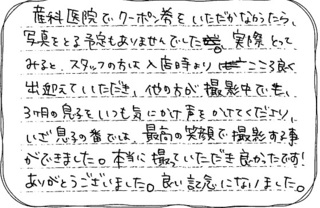 産科医院でクーポン券をいただかなかったら、
写真をとる予定もありませんでした。実際とって
みると、スタッフの方は入店時よりこころ良く
出迎えていただき、他の方が撮影中でも、
3ヶ月の息子をいつも気にかけ声をかけてくださり、
いざ息子の番では、最高の笑顔で撮影する事
ができました。本当に撮っていただき良かったです!
ありがとうございました。良い記念になりました。